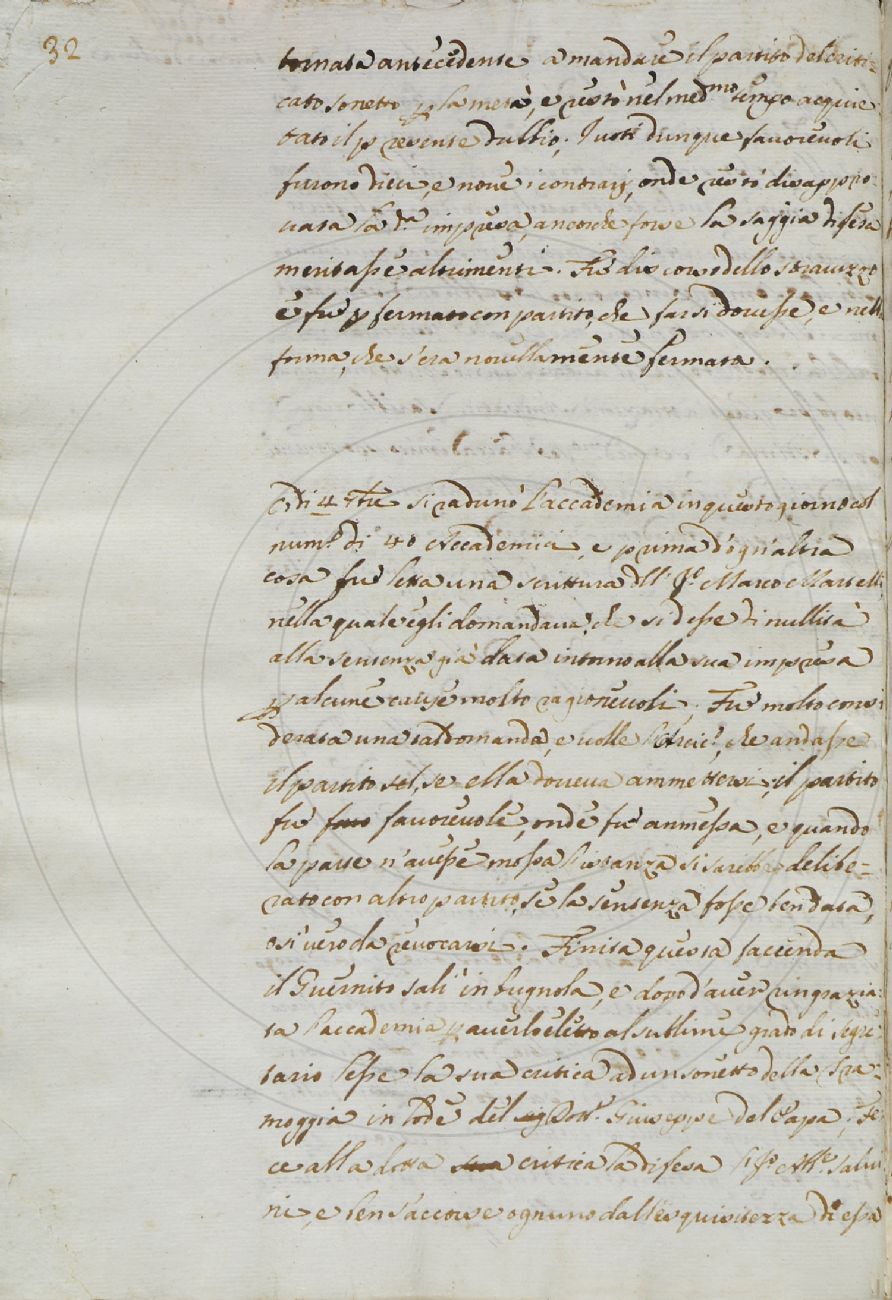 32
tornata antecedente a mandare il partito del criti-
cato sonetto p la metà, e restò nel med.mo tempo acquie
tato il presente dubbio. I voti dunque favorevoli
furono dieci, e nove i contrarij, onde restò disappro-
vata la d.a impresa, ancorche forse la saggia difesa
meritasse altrimenti. Fù discorso dello stravizzo
e fù fermato con partito, che farsi dovesse, e nella
forma, che s'era novellamente fermata.
A dì 4 7bre si radunò l'accademia in questo giorno col
num.o di 40 Accademici, e prima d'ogn'altra
cosa fù letta una scrittura dell' Marco Martelli
nella quale egli domandava, che si desse di nullità
alla sentenza già data intorno alla sua impresa
p alcune cause molto ragionevoli. Fù molto consi-
derata una tal domanda, e volle l'Arcic.o, che andasse
il partito sol, se ella doveva ammettersi, il partito
fù favorevole, onde fù ammessa, e quando
la parte n'avesse mossa l'istanza si sarebbe delibe-
rato con altro partito, se la sentenza fosse ben data,
o sì vero da revocarsi. Finita questa faccenda
il Guernito salì in bugnola, e dopo d'aver ringrazia-
ta l'accademia p averlo eletto al sublime grado di segre
tario lesse la sua critica ad un sonetto della Tra-
moggia in lode del Dott.r Giuseppe del Papa. Fe
ce alla dotta critica la difesa Salvi
ni, e ben s'accorse ognuno dall'esquisitezza di essa